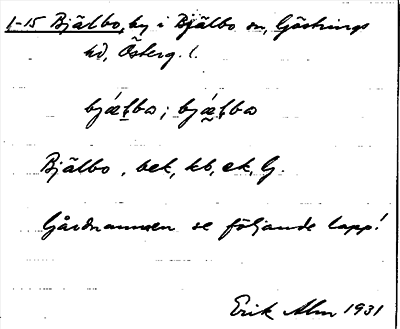 1-15 Bjälbo, by i Bjälbo sn, Göstrings
hd, Österg. l.
Bjälbo, bek, kb, ek, G.
Gårdnamnen se följande lapp!
Erik Alm 1931